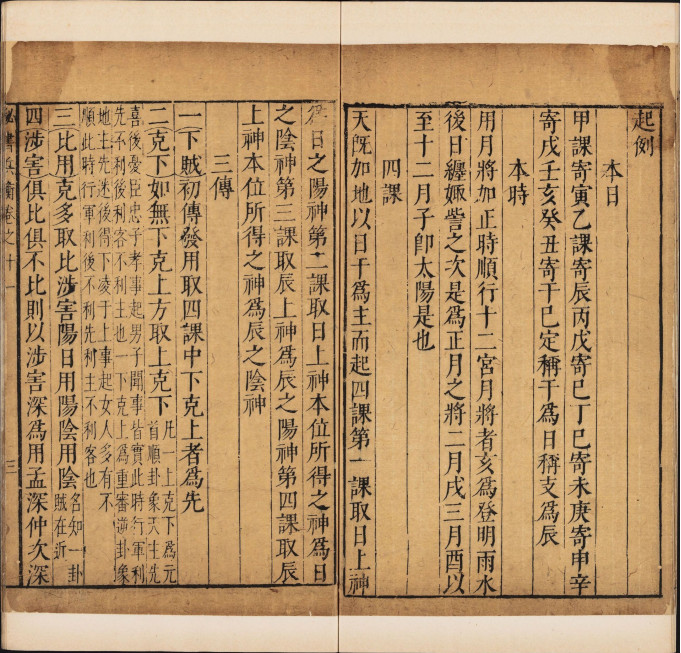 起例
本日
甲課寄寅乙課寄辰丙戊寄巳丁巳寄未庚寄申辛
寄戌壬亥癸丑寄干巳定稱干爲日稱支爲辰
本時
用月將加正時順行十二宮月將者亥爲登明雨水
後日纏娵訾之次是爲正月之將二月戌三月酉以
至十二月子卽太陽是也
四課
天旣加地以日干爲主而起四課第一課取日上神
爲日之陽神第二課取日上神本位所得之神爲日
之陰神第三課取辰上神爲辰之陽神第四課取辰
上神本位所得之神爲辰之陰神
三傳
一下賊初傳發用取四課中下克上者爲先
二克下如無下克上方取上克下凡一上克下爲元首順卦象天主先
喜後憂臣忠子孝事起男子聞事皆實此時行軍利
先不利後利客不利主也一下克上爲重審逆卦象
地主先迷後得下凌于上事起女人多有不
順此時行軍利後不利先利主不利客也
三比用克多取比涉害陽日用陽陰用陰名知一卦賊在近
四涉害俱比俱不比則以涉害深爲用孟深仲次深
書兵衡卷之十一 三